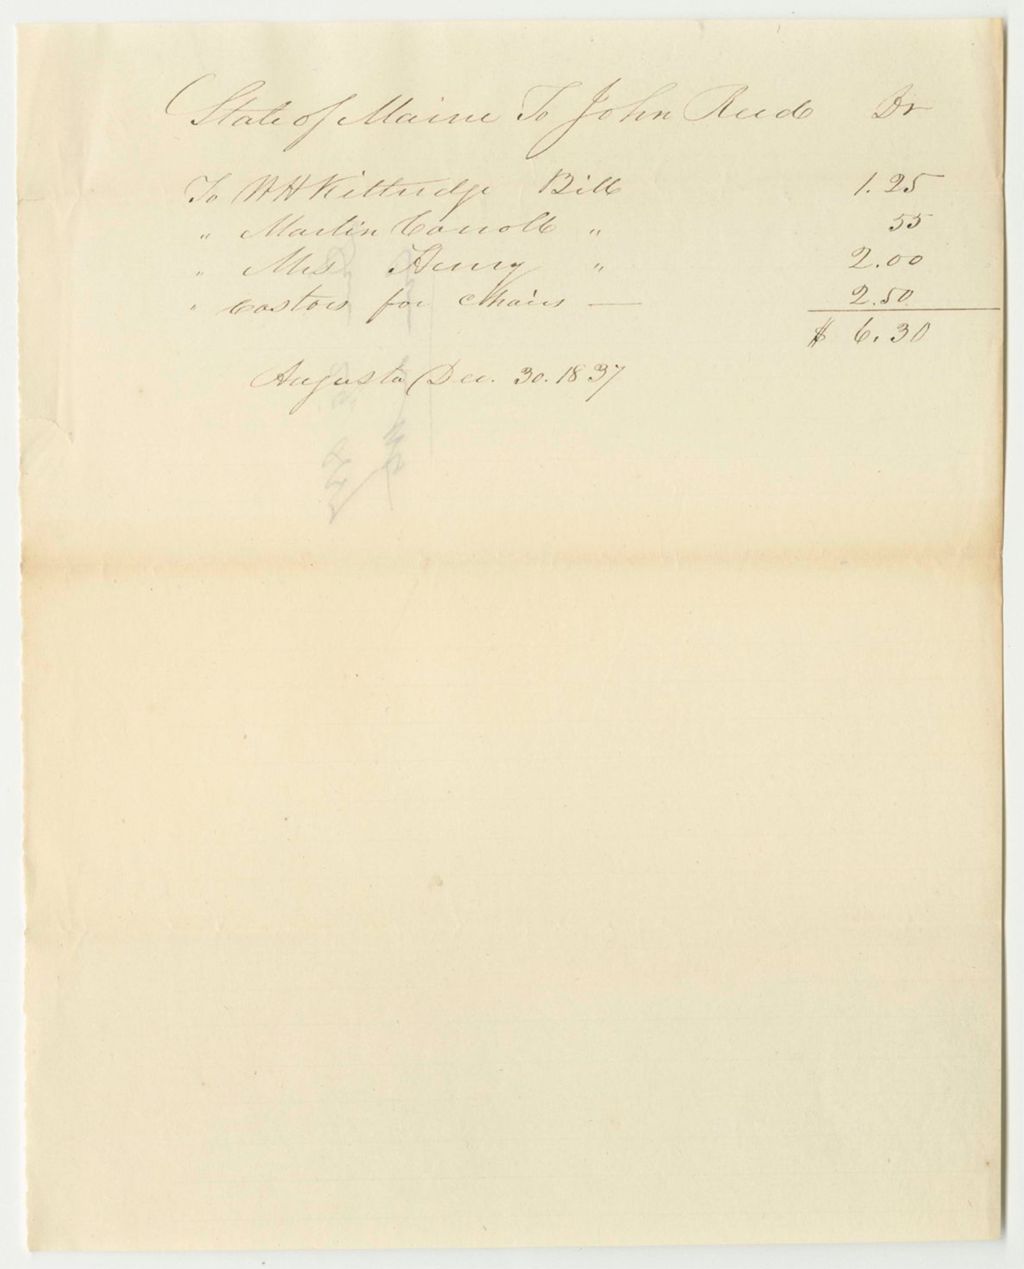 State of Maine To John Reed Dr
To W H Kittredge Bill 1.25
" Martin Carroll " 55
" Mrs Henry " 2.00
" Castors for Chairs — 2.50
$ 6.30
Augusta Dec. 30. 1837